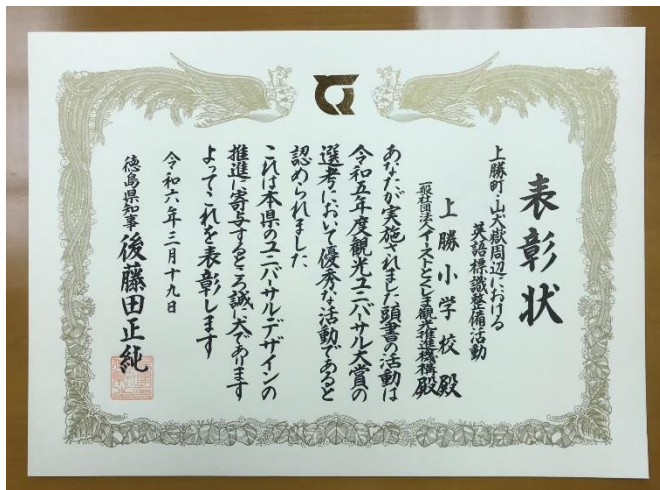 表彰状
上勝町・山犬嶽周辺における
英語標識整備活動
上勝小学校殿
一般社団法人イーストとくしま観光推進機構殿
あなたが実施されました頭書の活動は
令和五年度観光ユニバーサル大賞の
選考において優秀な活動であると
認められました
これは本県のユニバーサルデザインの
推進に寄与するところ誠に大であります
よってこれを表彰します
令和六年三月十九日
徳島県知事 後藤田正純